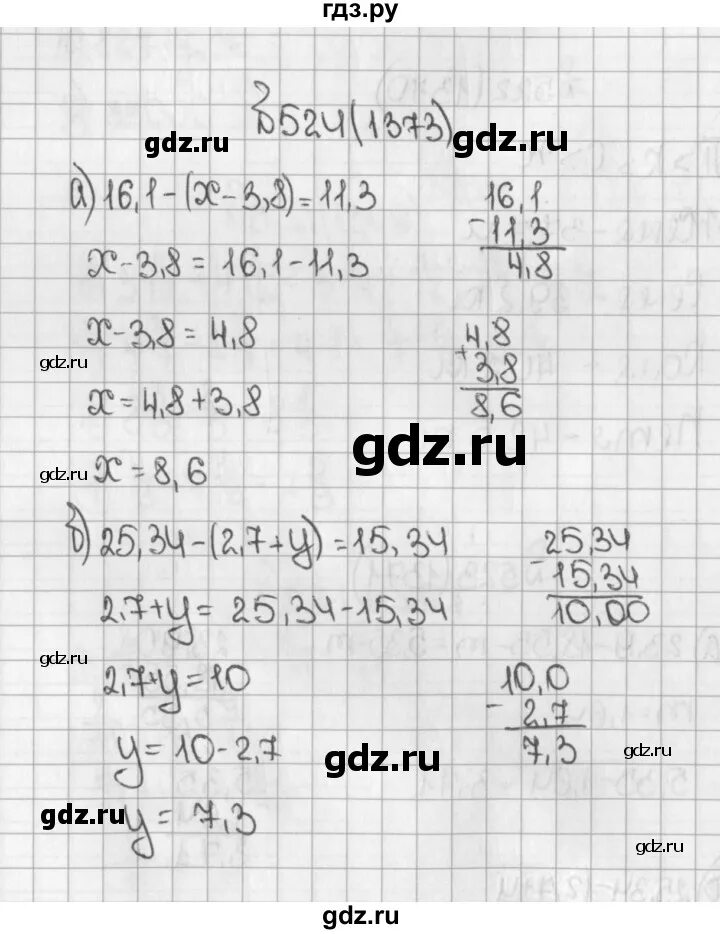 гдз.ру
№524(1373)
gdz.ru gdz.ru
а) 16,1-(x-3,8)=11,3
16,1
- 11,3
4,8
x-3,8 = 16,1-11,3
x-3,8 = 4,8
gdz.ru
4,8
+ 3,8
8,6
x = 4,8+3,8
gdz.ru
gdz.ru
x = 8,6
б) 25,34-(2,7+y)=15,34
25,34
- 15,34
10,00
2,7+y = 25,34-15,34
gdz.ru
2,7+y = 10
10,0
- 2,7
7,3
y = 10-2,7
gdz.ru
gdz.ru
gdz.ru
y = 7,3
gdz.ru
gdz.ru